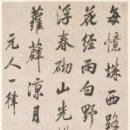 每憶西路
花經雨白野
浮春山光
蘿薜涼月
元人一律